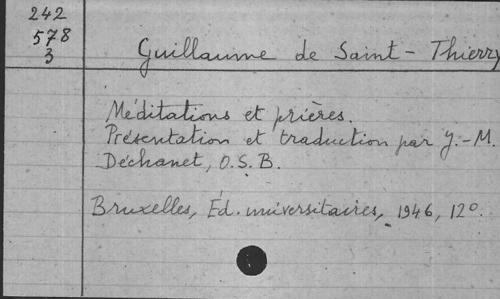 242
578
3
Guillaume de Saint-Thierry
Méditations et prières.
Présentation et traduction par J.-M.
Déchanet, O.S.B.
Bruxelles, Éd. universitaires, 1946, 12°.